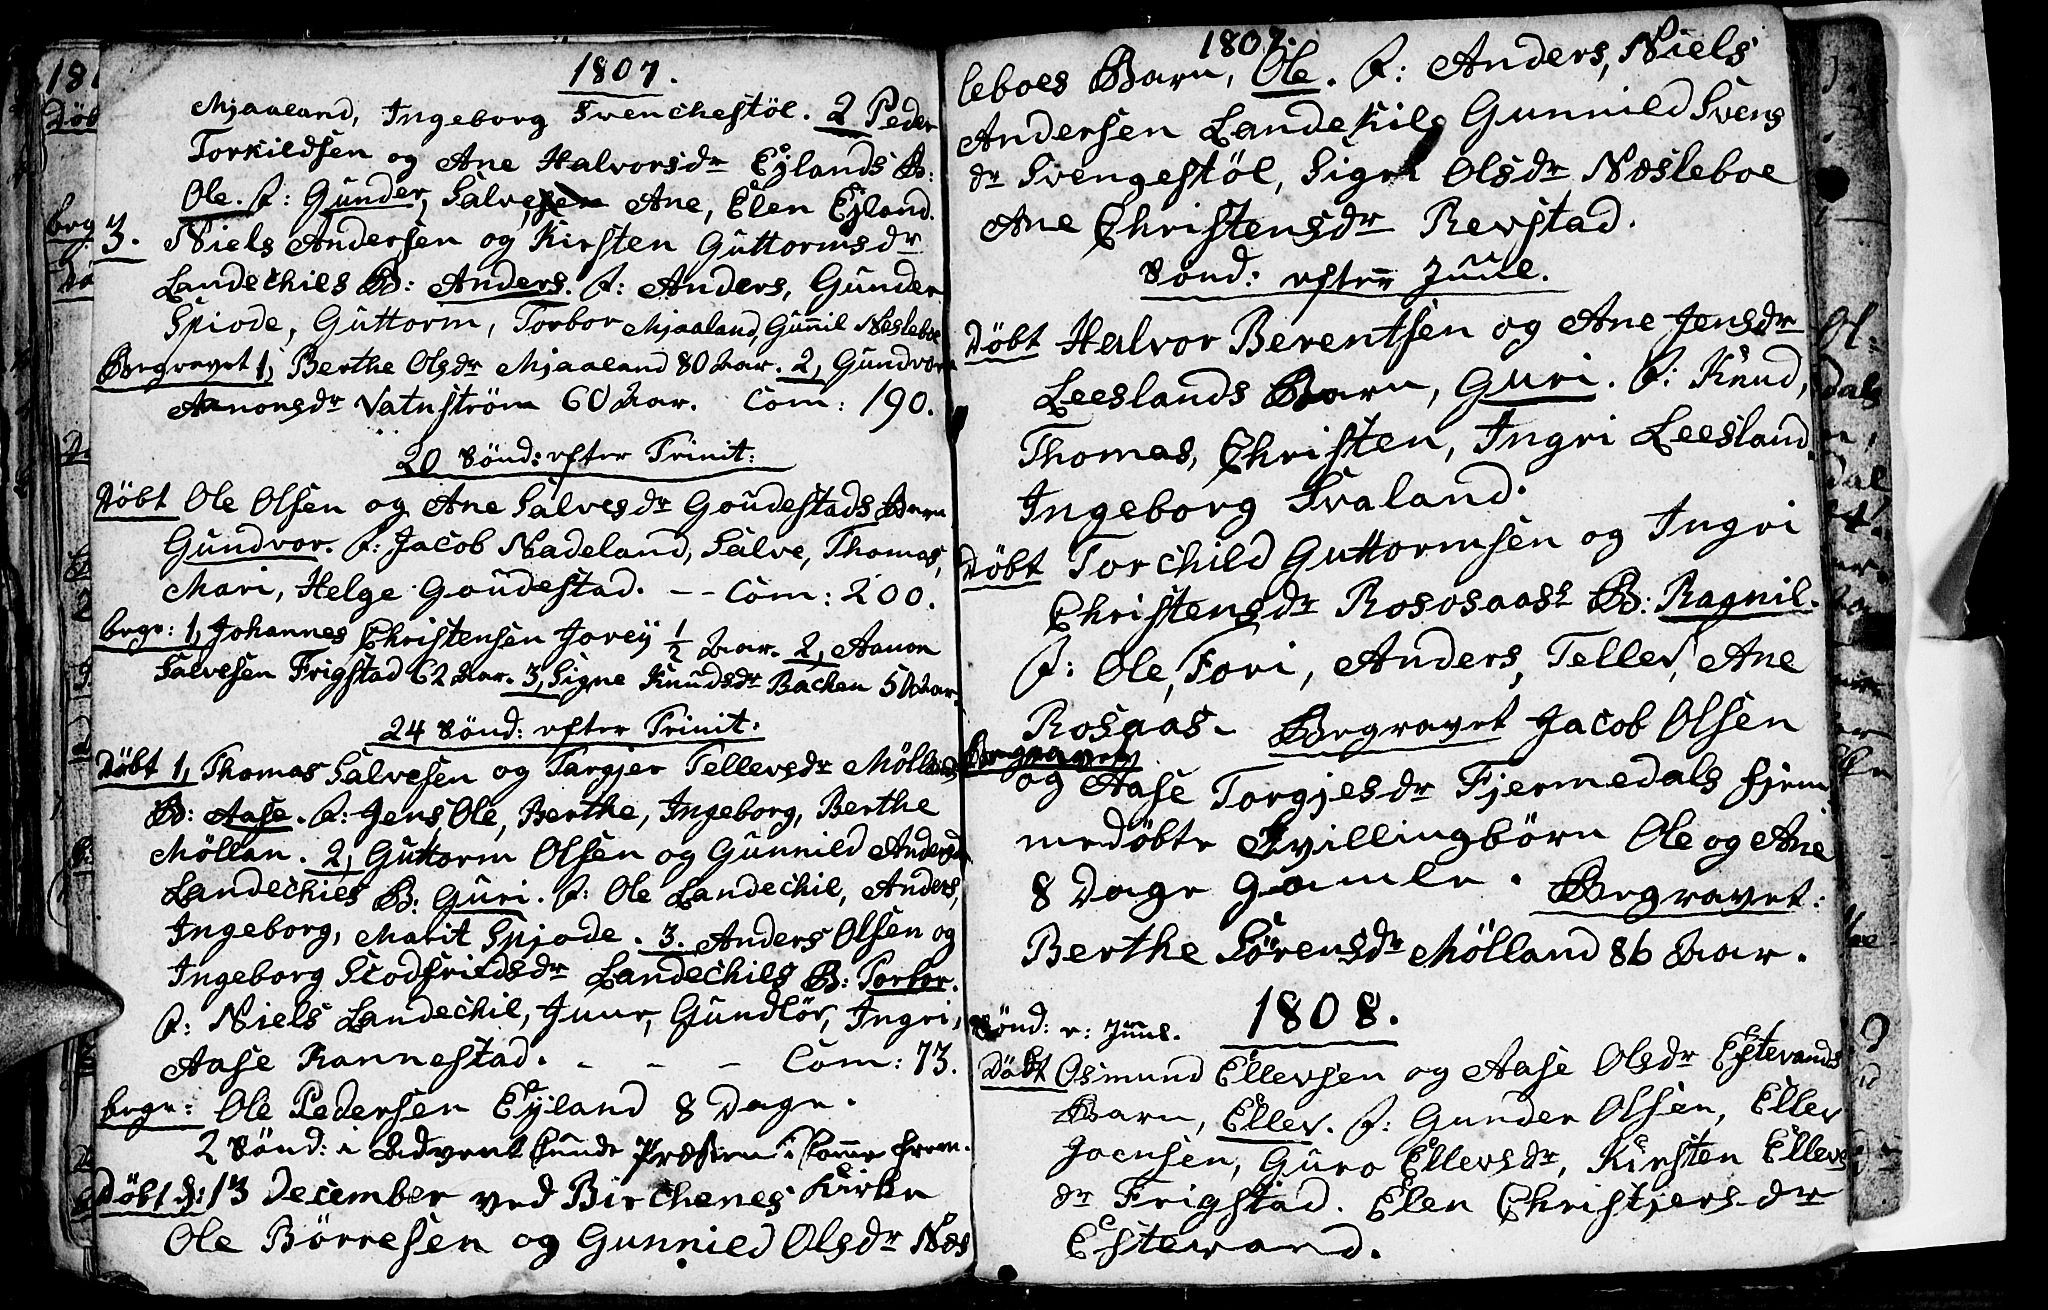 1807.
Mjaaland, Ingeborg Svenchestöl. 2 Peder
Torkildsen og Ane Halvorsdr Eÿlands B:
Ole. F: Gunder, Salve, Ane, Elen Eÿland.
3. Niels Andersen og Kirsten Guttormsdr
Landechils B: Anders. F: Anders, Gunder
Spiode, Guttorm, Torbor Mjaaland, Gunnil Nesleboe
Begravet 1, Berthe Olsdr Mjaaland 80 Aar. 2, Gundvor
Aanonsdr Vatnström 60 Aar. Com: 190.
20 Sönd: efter Trinit:
Döbt Ole Olsen og Ane Salvesdr Goudestads Barn
Gundvor. F: Jacob Nadeland, Salve, Thomas,
Mari, Helge Goudestad. -- Com: 200.
begr: 1, Johannes Christensen Joreÿ ½ Aar. 2, Aanon
Salvesen Frigstad 62 Aar. 3, Signe Knudsdr Bachen 50 Aar.
24 Sönd: efter Trinit:
Döbt 1, Thomas Salvesen og Targjer Tellevsdr Möllands
B: Aase. F: Jens, Ole, Berthe, Ingeborg, Berthe
Möllan. 2, Guttorm Olsen og Gunnild Andersdr
Landechils B: Guri. F: Ole Landechil, Anders,
Ingeborg, Marit Spjode. 3. Anders Olsen og
Ingeborg Scodfriedsdr Landechils B: Torbor.
F: Niels Landechil, Juur, Gundlör, Ingri,
Aase Rannestad. - - - Com: 73.
begr: Ole Pedersen Eÿland 8 Dage.
2 Sönd: i Advent kunde Præsten i komme frem.
Döbt d: 13 December ved Birchenes Kirke
Ole Börresen og Gunnild Olsdr Næs
1807.
leboes Barn, Ole. F: Anders, Niels
Andersen Landekil, Gunnild Svens
dr Svengestöl, Sigri Olsdr Næsleboe
Ane Christensdr Revstad.
Sönd: efter Juul.
Döbt Halvor Berentsen og Ane Jensdr
Leeslands Barn, Guri. F: Knud,
Thomas, Christen, Ingri Leesland.
Ingeborg Svaland.
Döbt Torchild Guttormsen og Ingri
Christensdr Rososaas B: Ragnil.
F: Ole, Tori, Anders, Tellev, Ane
Rosaas. Begravet Jacob Olsen
Begravet
og Aase Torgjesdr Fjermedals hjem
medöbte Tvillingbörn Ole og Ane
8 Dage gamle. Begravet:
Berthe Sörensdr Mölland 86 Aar.
1808.
Sönd: e: Juul.
Döbt Osmund Ellevsen og Aase Olsdr Estevands
Barn, Ellev. F: Gunder Olsen, Ellev
Joensen, Guro Ellevsdr, Kirsten Ellevs
dr Frigstad. Elen Christjersdr
Estevand.